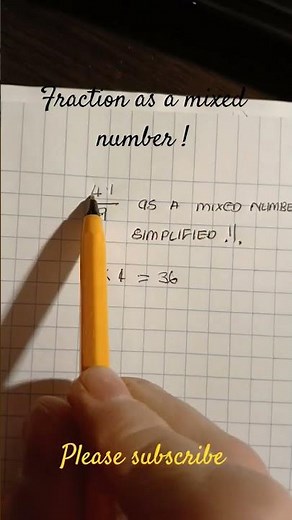 Fraction as a mixed
number !
41
9
AS A MIXED NUMBE
SIMPLIFIED !!.
4 = 36
Please subscribe